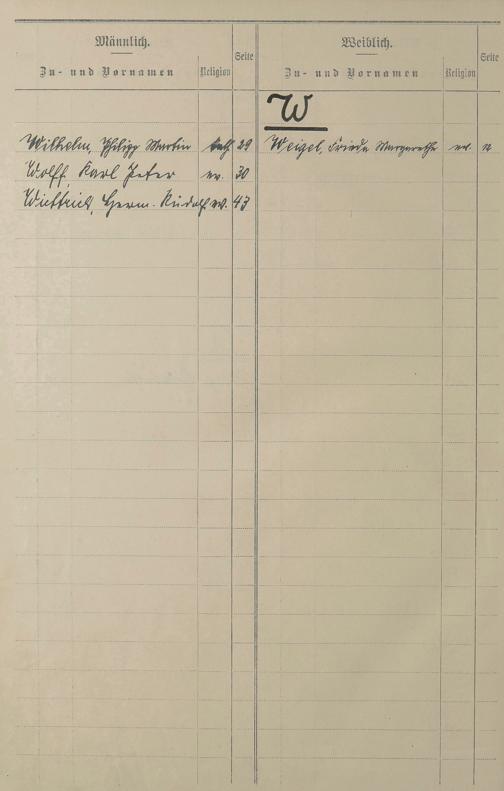 Männlich.
Zu- und Vornamen Religion Seite
Wilhelm, Philipp Martin kath 29
Wolff, Karl Peter ev. 30
Wittrick, Herm. Rudolf ev. 43
Weiblich.
Zu- und Vornamen Religion Seite
W
Weigel, Frieda Margarethe ev.